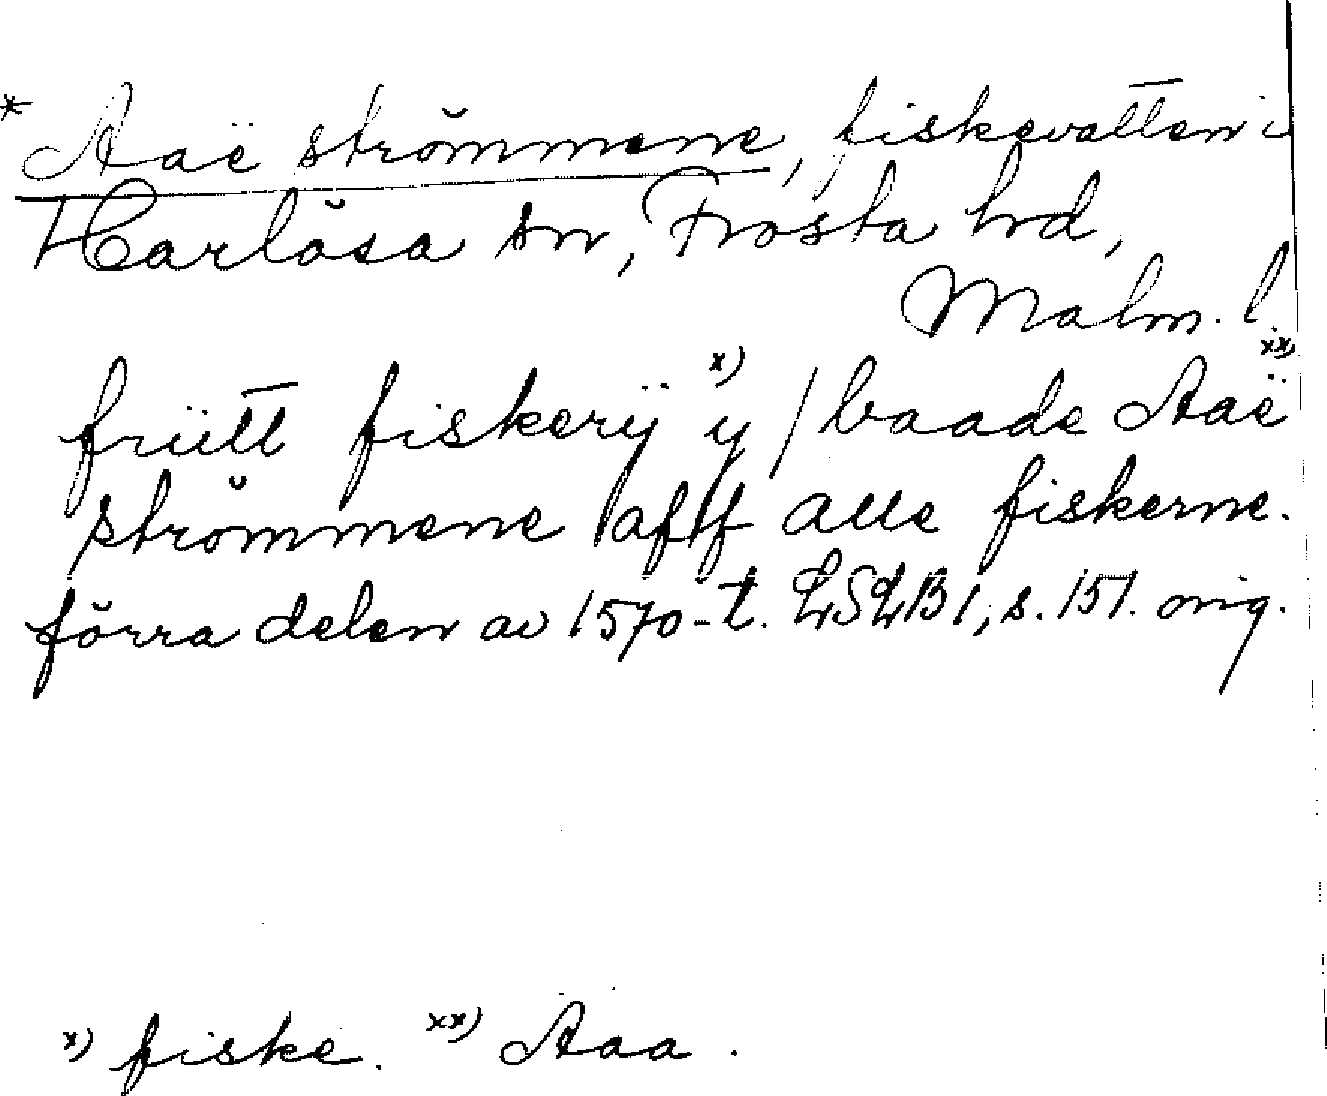 * Aaë strömmene, fiskevatten i
Harlösa sn, Frosta hd,
Malm. l.
friitt fiskerÿ x) y / baade Aaë xx)
strömmene / aff alle fiskerne.
förra delen av 1570-t. LSLB 1, s. 151. orig.
x) fiske. xx) Aaa.